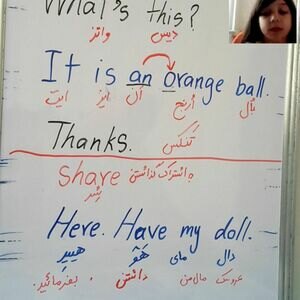 What's this?
واتز دیس
It is an orange ball.
ایت ایز اَن اُرنج بال
Thanks.
تَنکس
share به اشتراک گذاشتن
شِر
Here. Have my doll.
هییر هَوْ مای دال
بفرمائید. داشتن مال من عروسک